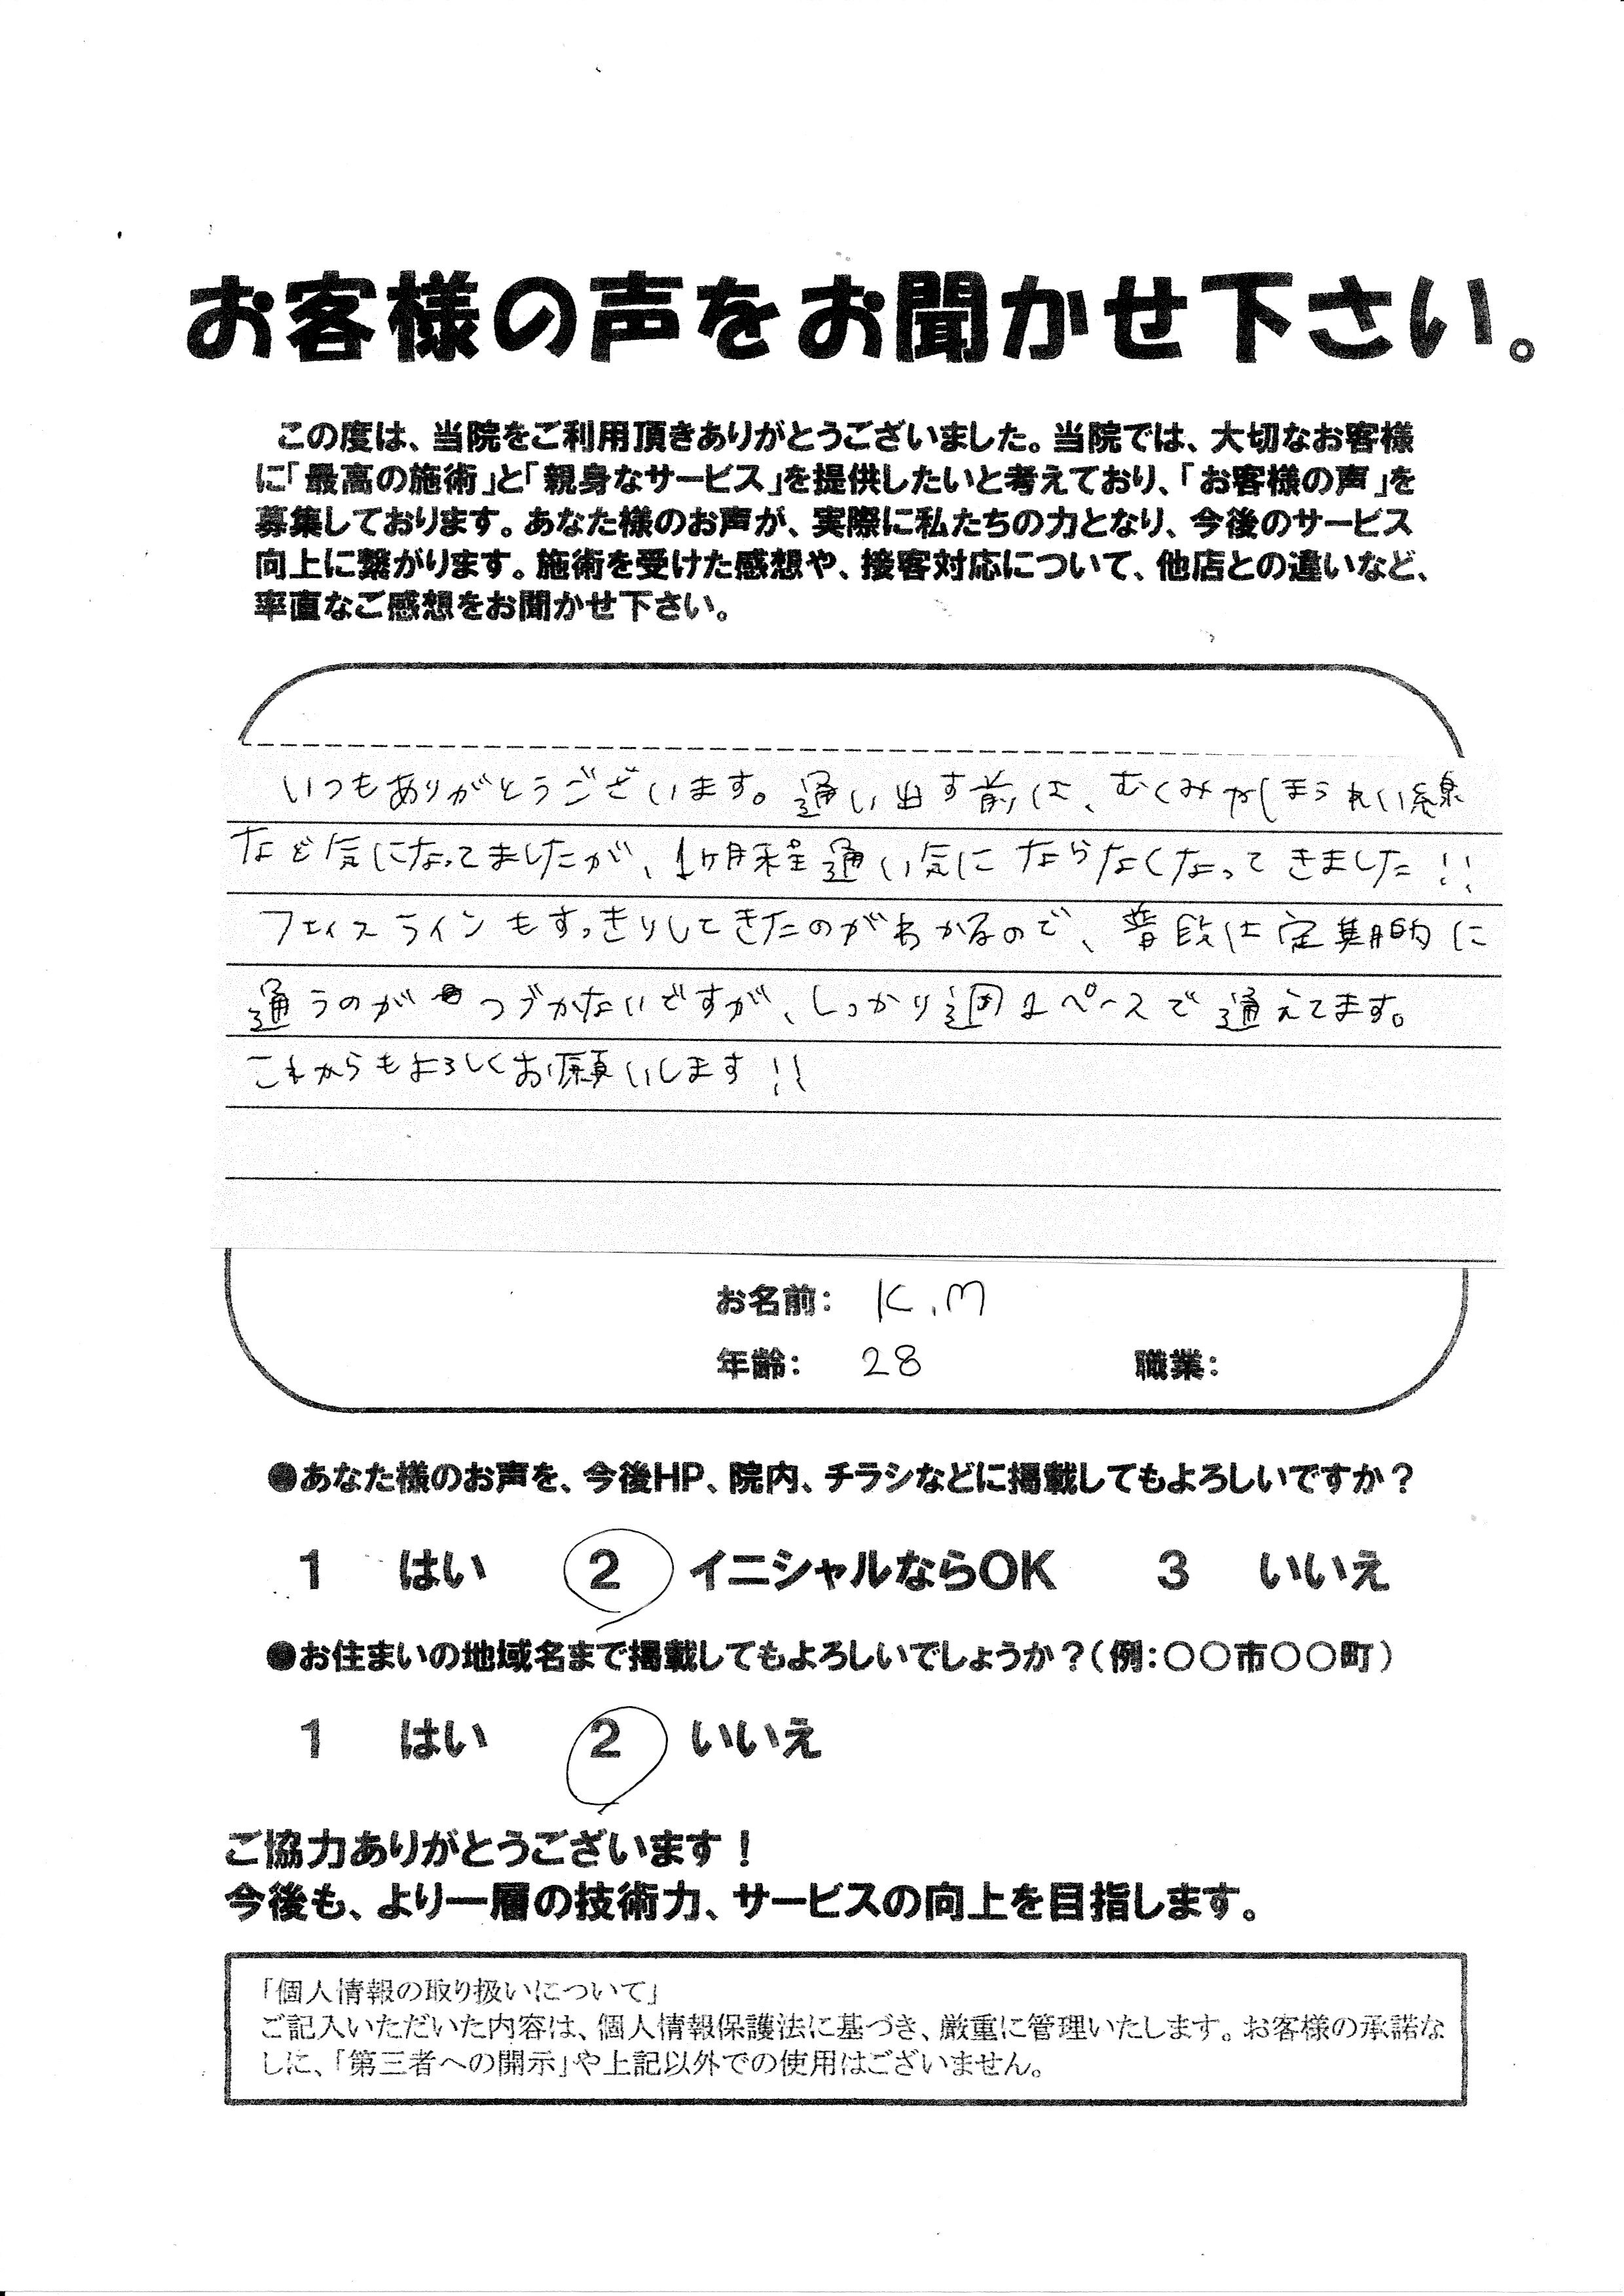 お客様の声をお聞かせ下さい。
この度は、当院をご利用頂きありがとうございました。当院では、大切なお客様
に「最高の施術」と「親身なサービス」を提供したいと考えており、「お客様の声」を
募集しております。あなた様のお声が、実際に私たちの力となり、今後のサービス
向上に繋がります。施術を受けた感想や、接客対応について、他店との違いなど、
率直なご感想をお聞かせ下さい。
いつもありがとうございます。通い出す前は、むくみやほうれい線
など気になってましたが、1ヶ月程通い気にならなくなってきました!!
フェイスラインもすっきりしてきたのがわかるので、普段は定期的に
通うのがつづかないですが、しっかり週1ペースで通えてます。
これからもよろしくお願いします!!
お名前: K.M
年齢: 28 職業:
●あなた様のお声を、今後HP、院内、チラシなどに掲載してもよろしいですか?
1 はい 2 イニシャルならOK 3 いいえ
●お住まいの地域名まで掲載してもよろしいでしょうか?(例:○○市○○町)
1 はい 2 いいえ
ご協力ありがとうございます!
今後も、より一層の技術力、サービスの向上を目指します。
「個人情報の取り扱いについて」
ご記入いただいた内容は、個人情報保護法に基づき、厳重に管理いたします。お客様の承諾な
しに、「第三者への開示」や上記以外での使用はございません。